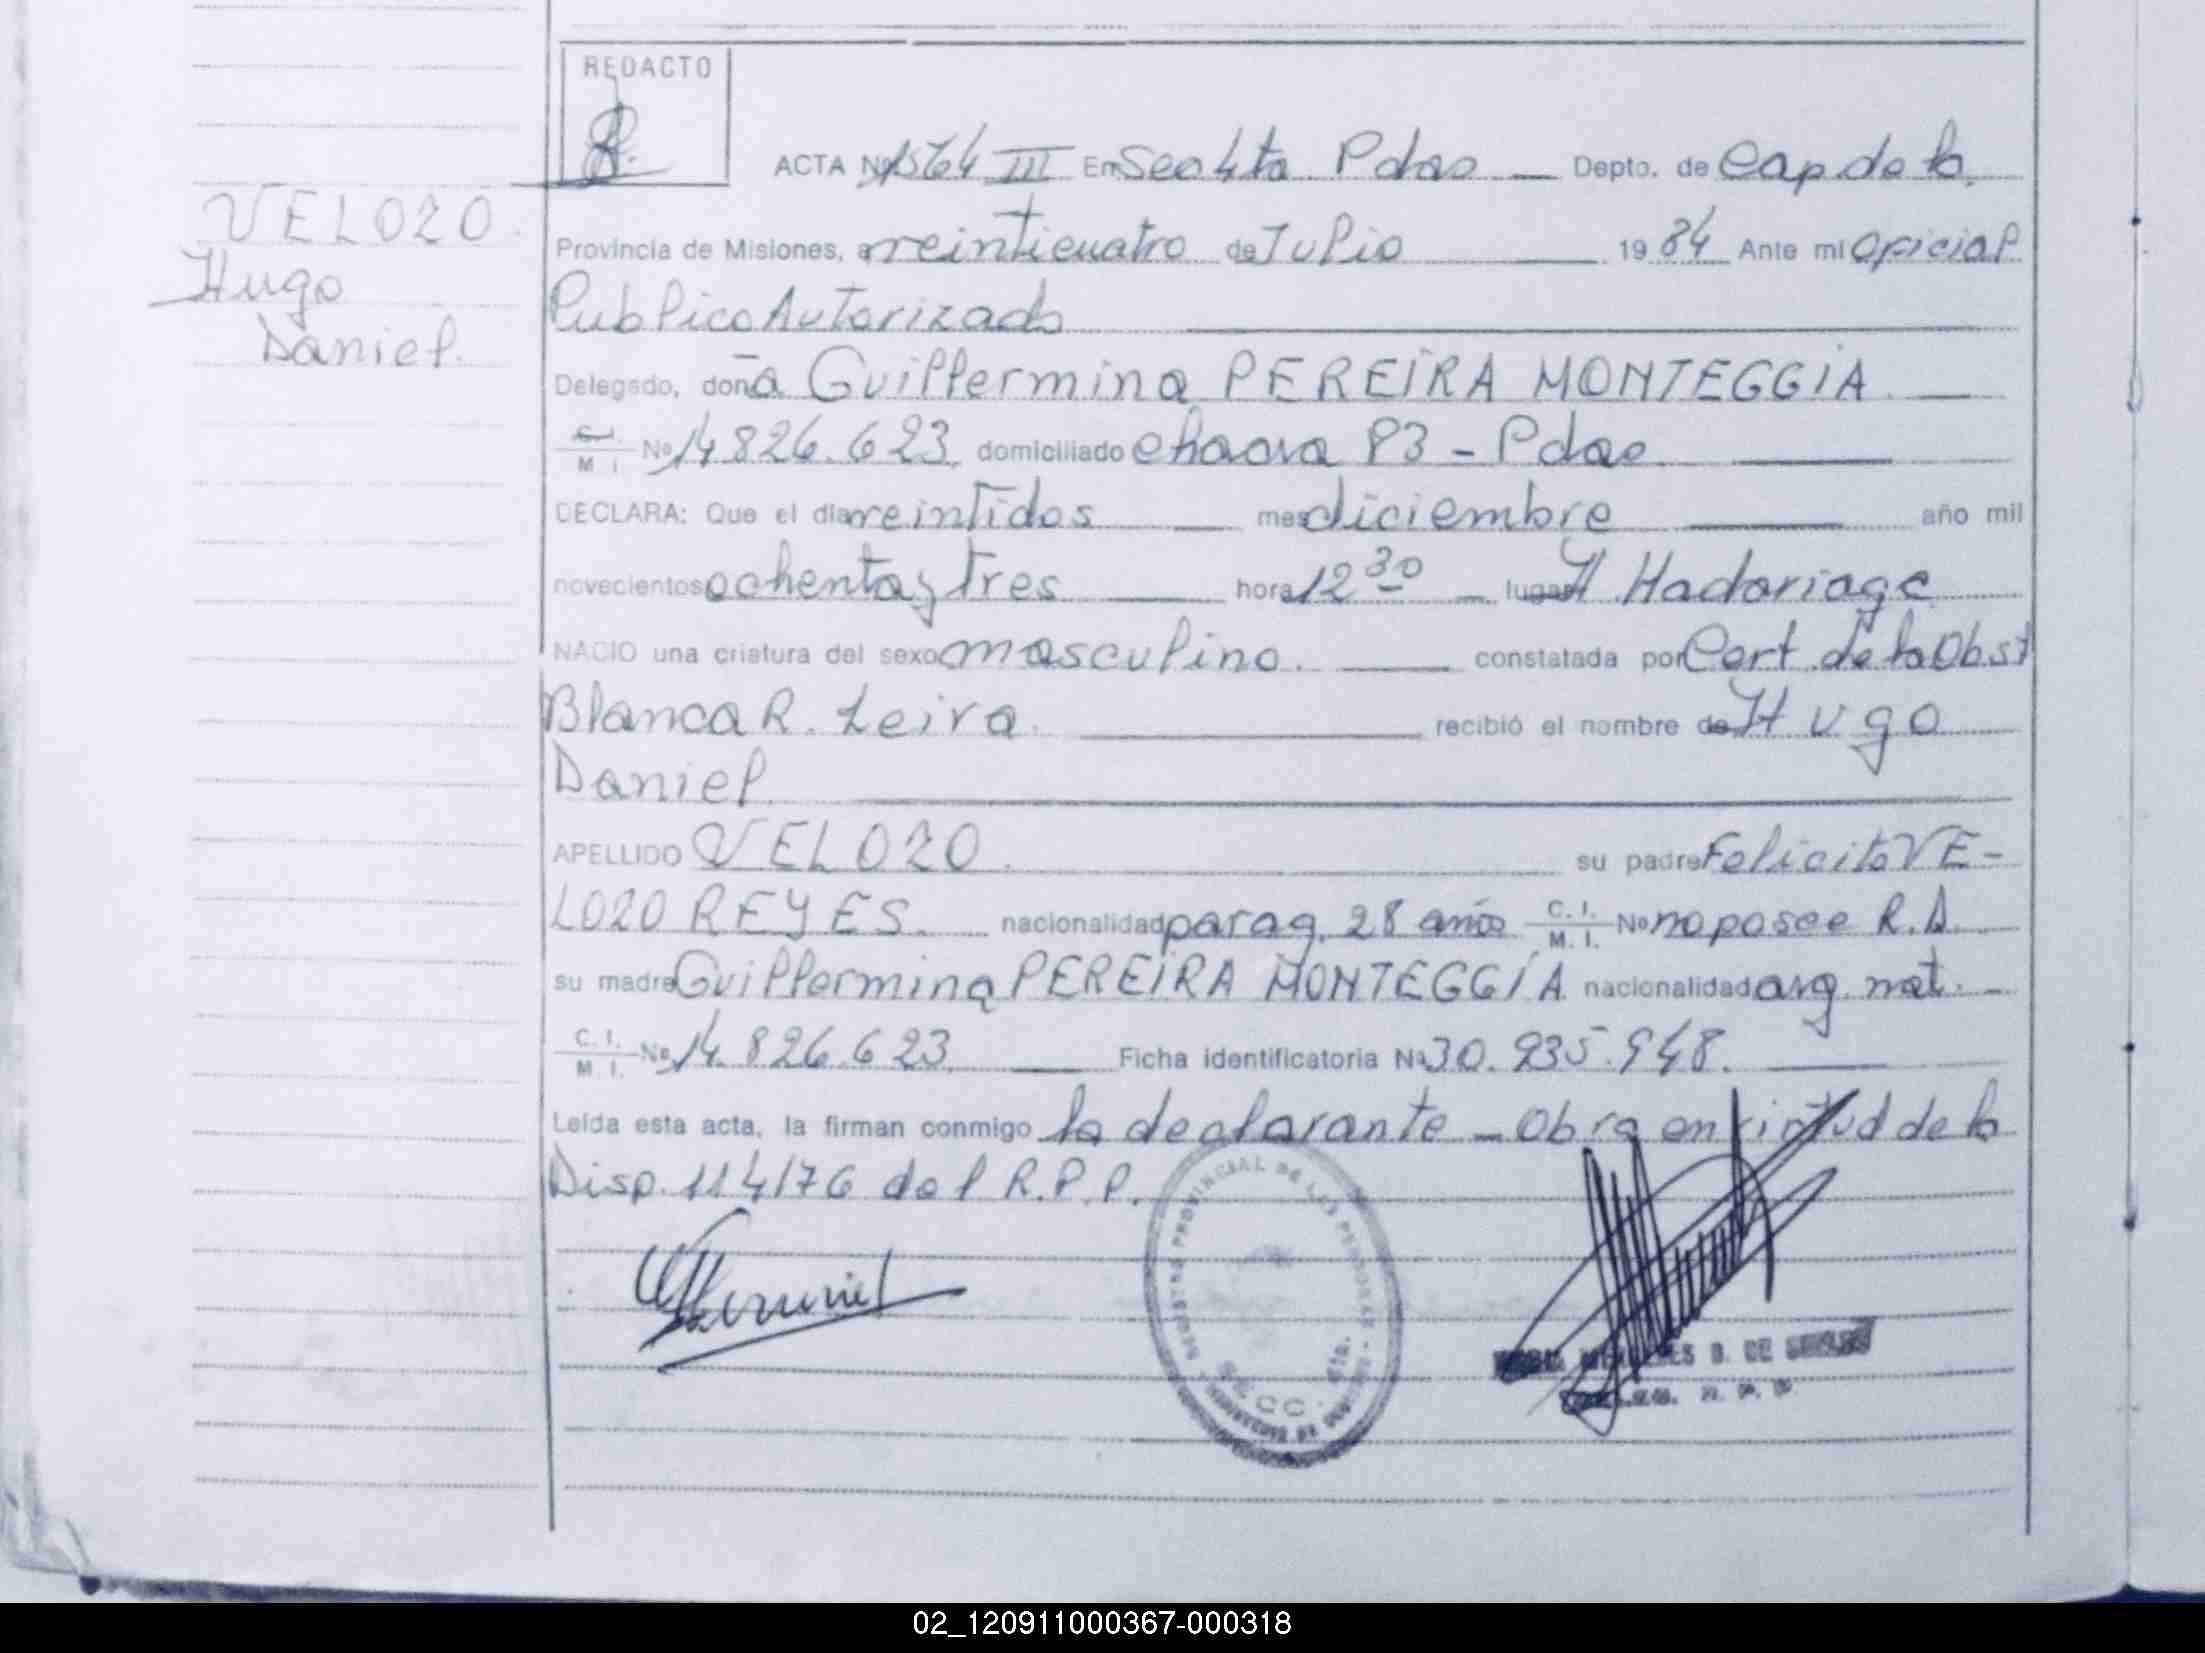 REDACTO
ACTA Nº 1564 III En Secc 4ta Pdas Depto. de Cap de la
VELOZO
Provincia de Misiones, a veinticuatro de Julio 1984 Ante mi Oficial
Hugo
Publico Autorizado
Daniel.
Delegado, doña Guillermina PEREIRA MONTEGGIA
M I Nº 14.826.623 domiciliado chacra 83 - Pdas
DECLARA: Que el día veintidos mes diciembre año mil
novecientos ochenta y tres hora 12 30 lugar H. Madariaga
NACIO una criatura del sexo masculino. constatada por Cert. de la Obst
Blanca R. Leiva. recibió el nombre de Hugo
Daniel
APELLIDO VELOZO. su padre Felicito VE-
LOZO REYES. nacionalidad parag. 28 años C. I. M. I. Nº no posee R.D.
su madre Guillermina PEREIRA MONTEGGIA nacionalidad arg. nat.
C. I. M. I. Nº 14.826.623 Ficha identificatoria Nº 30.935.948.
Leída esta acta, la firman conmigo la declarante - Obra en virtud de la
Disp. 114/76 del R.P.P.
REGISTRO PROVINCIAL DE LAS PERSONAS
SECC. 4ta.
02_120911000367-000318